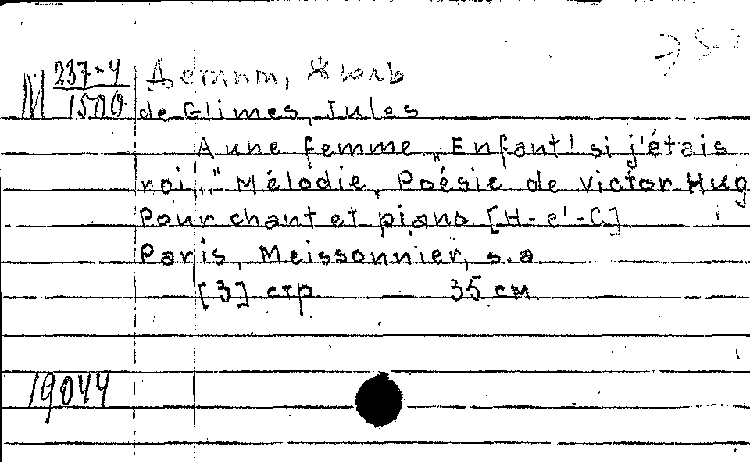 М 237-4/1500
Деглим, Жюль
de Glimes, Jules
A une femme „Enfant! si j'étais
roi..." Mélodie, Poésie de Victor Hug
Pour chant et piano [H-e'-C]
Paris, Meissonnier, s.a
[3] стр. 35 см
19044